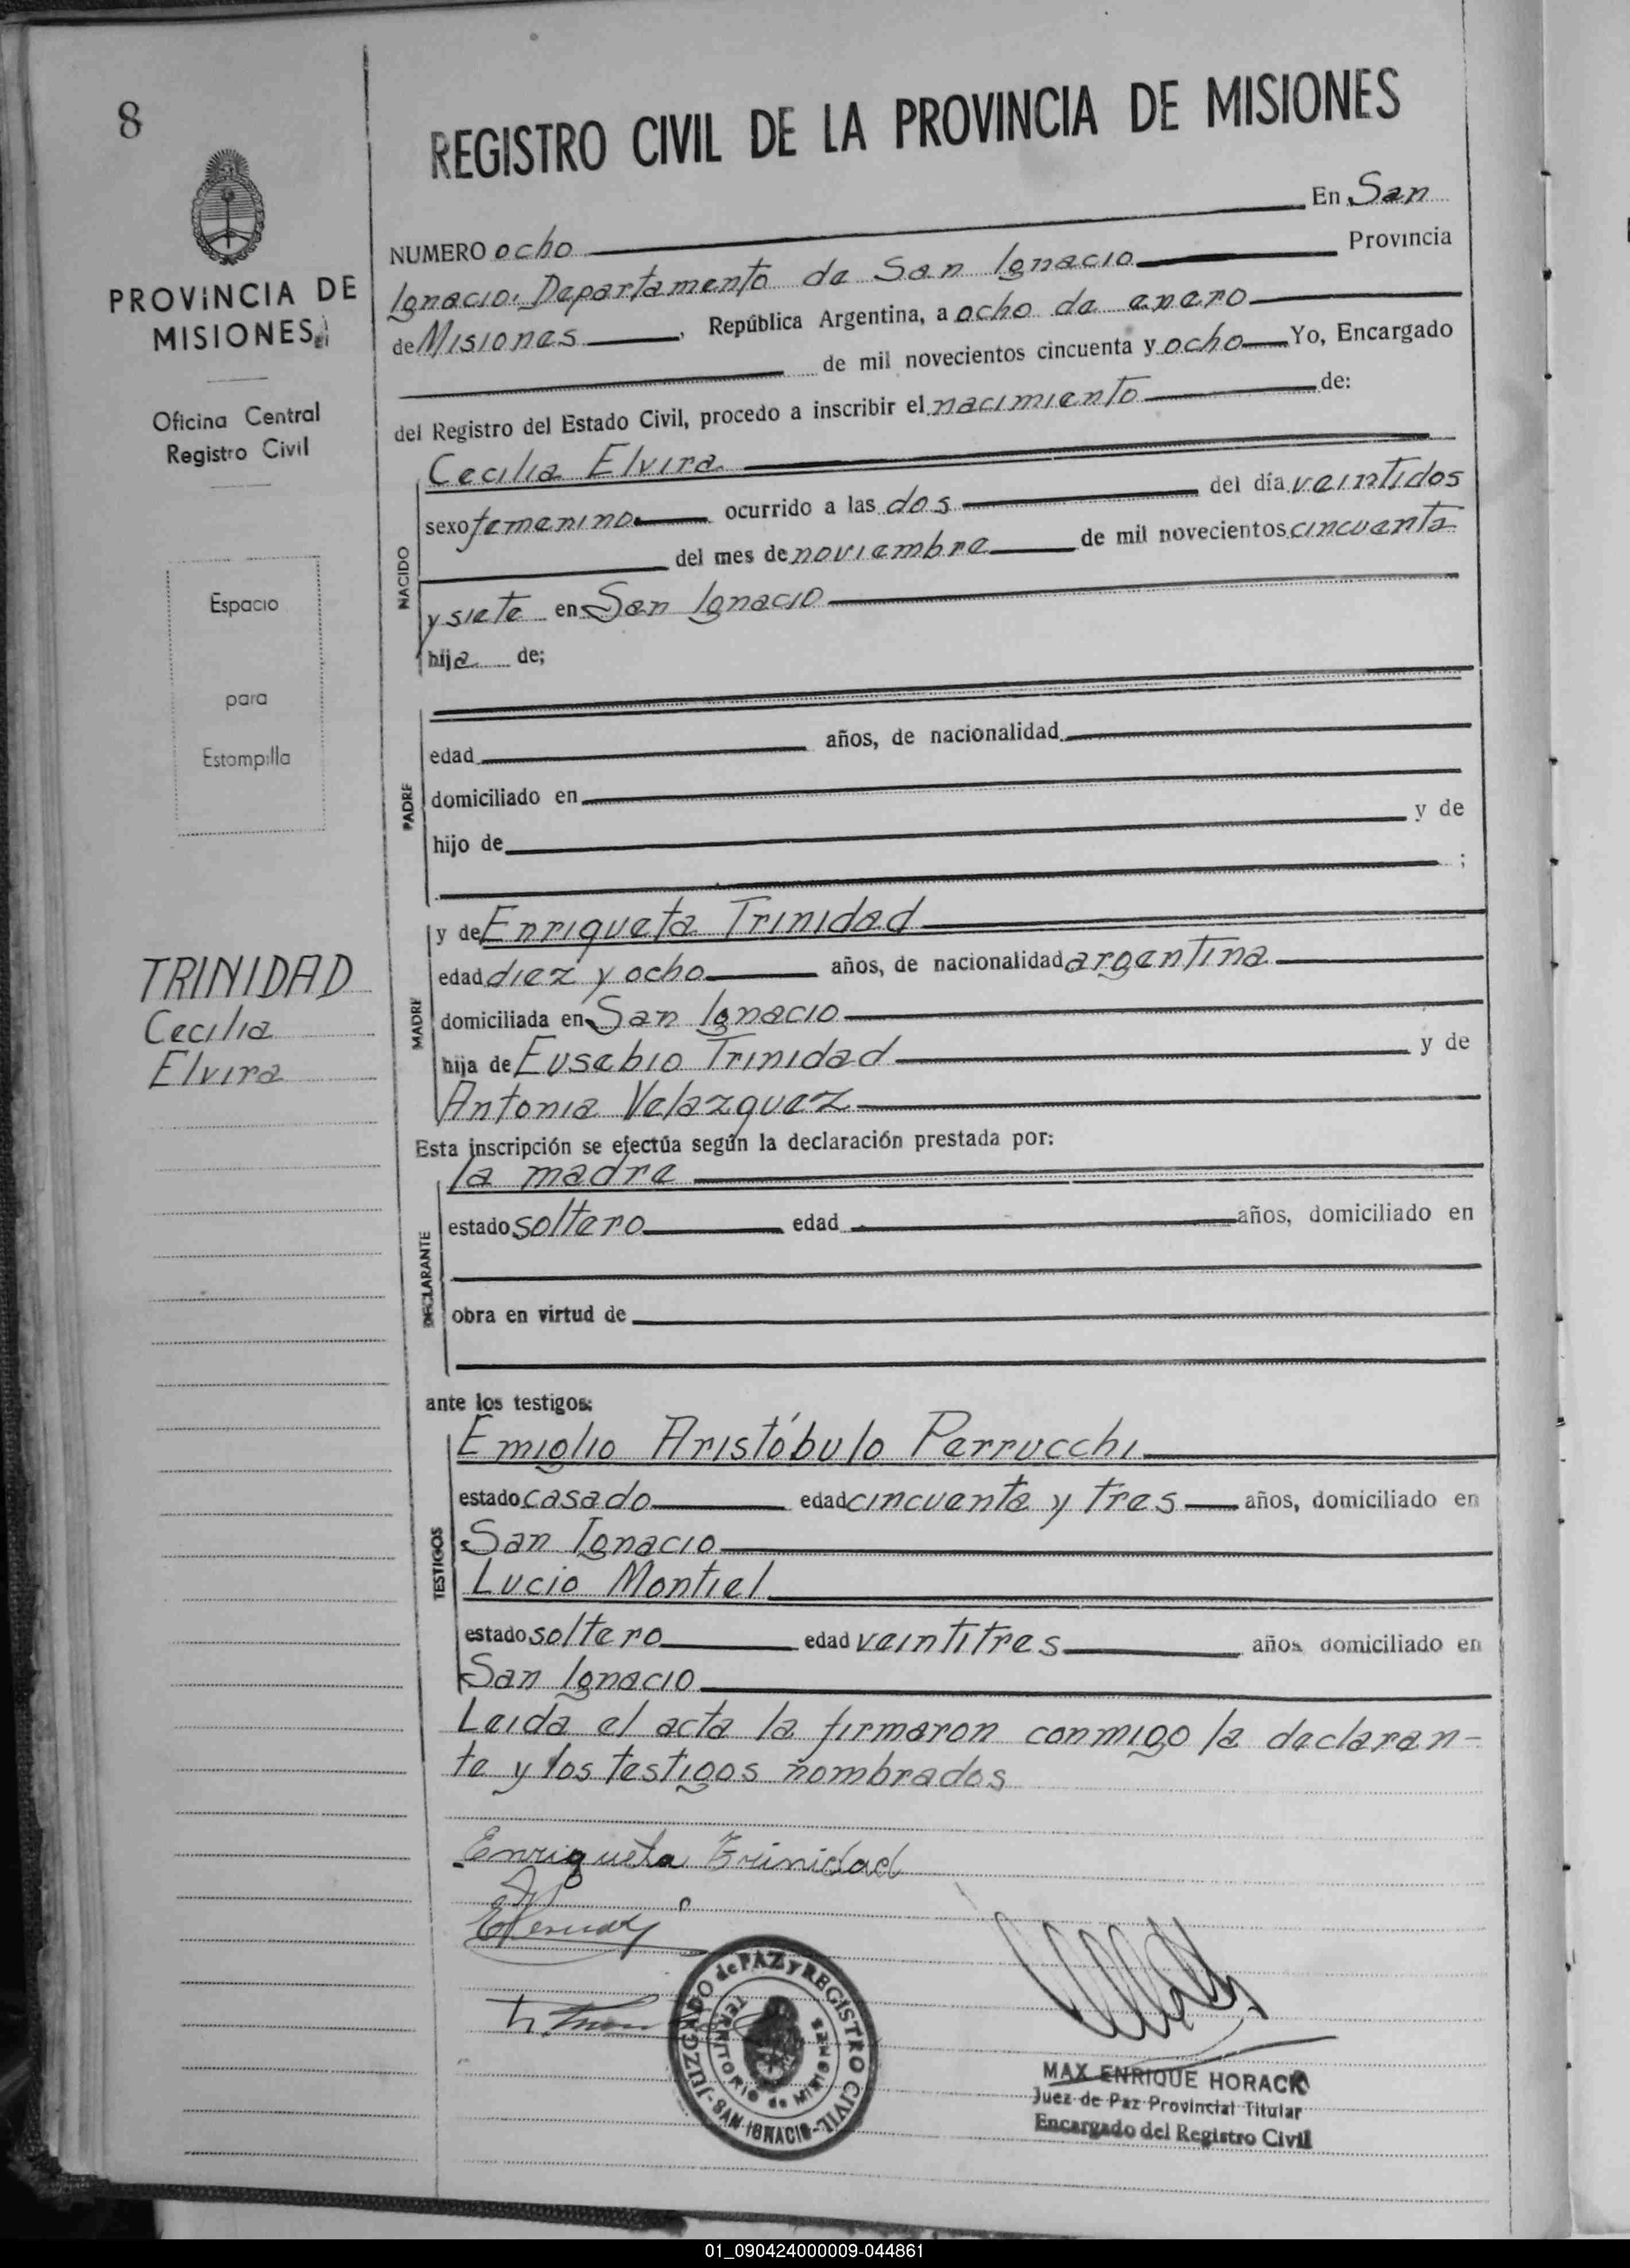 8
PROVINCIA DE
MISIONES
Oficina Central
Registro Civil
Espacio
para
Estampilla
TRINIDAD
Cecilia
Elvira
REGISTRO CIVIL DE LA PROVINCIA DE MISIONES
NUMERO ocho En San
Ignacio, Departamento de San Ignacio Provincia
de Misiones, República Argentina, a ocho de enero
de mil novecientos cincuenta y ocho Yo, Encargado
del Registro del Estado Civil, procedo a inscribir el nacimiento de:
NACIDO
Cecilia Elvira
sexo femenino ocurrido a las dos del día veintidos
del mes de noviembre de mil novecientos cincuenta
y siete en San Ignacio
hija de;
PADRE
edad años, de nacionalidad
domiciliado en
hijo de y de
;
MADRE
y de Enriqueta Trinidad
edad diez y ocho años, de nacionalidad argentina
domiciliada en San Ignacio
hija de Eusebio Trinidad y de
Antonia Velazquez
Esta inscripción se efectúa según la declaración prestada por:
DECLARANTE
la madre
estado soltero edad años, domiciliado en
obra en virtud de
ante los testigos:
TESTIGOS
Emiglio Aristóbulo Perrucchi
estado casado edad cincuenta y tres años, domiciliado en
San Ignacio
Lucio Montiel
estado soltero edad veintitres años domiciliado en
San Ignacio
Leida el acta la firmaron conmigo la declaran-
te y los testigos nombrados
Enriqueta Trinidad
JUZGADO de PAZ y REGISTRO CIVIL
- SAN IGNACIO -
TERRITORIO de MISIONES
MAX ENRIQUE HORACK
Juez de Paz Provincial Titular
Encargado del Registro Civil
01_090424000009-044861